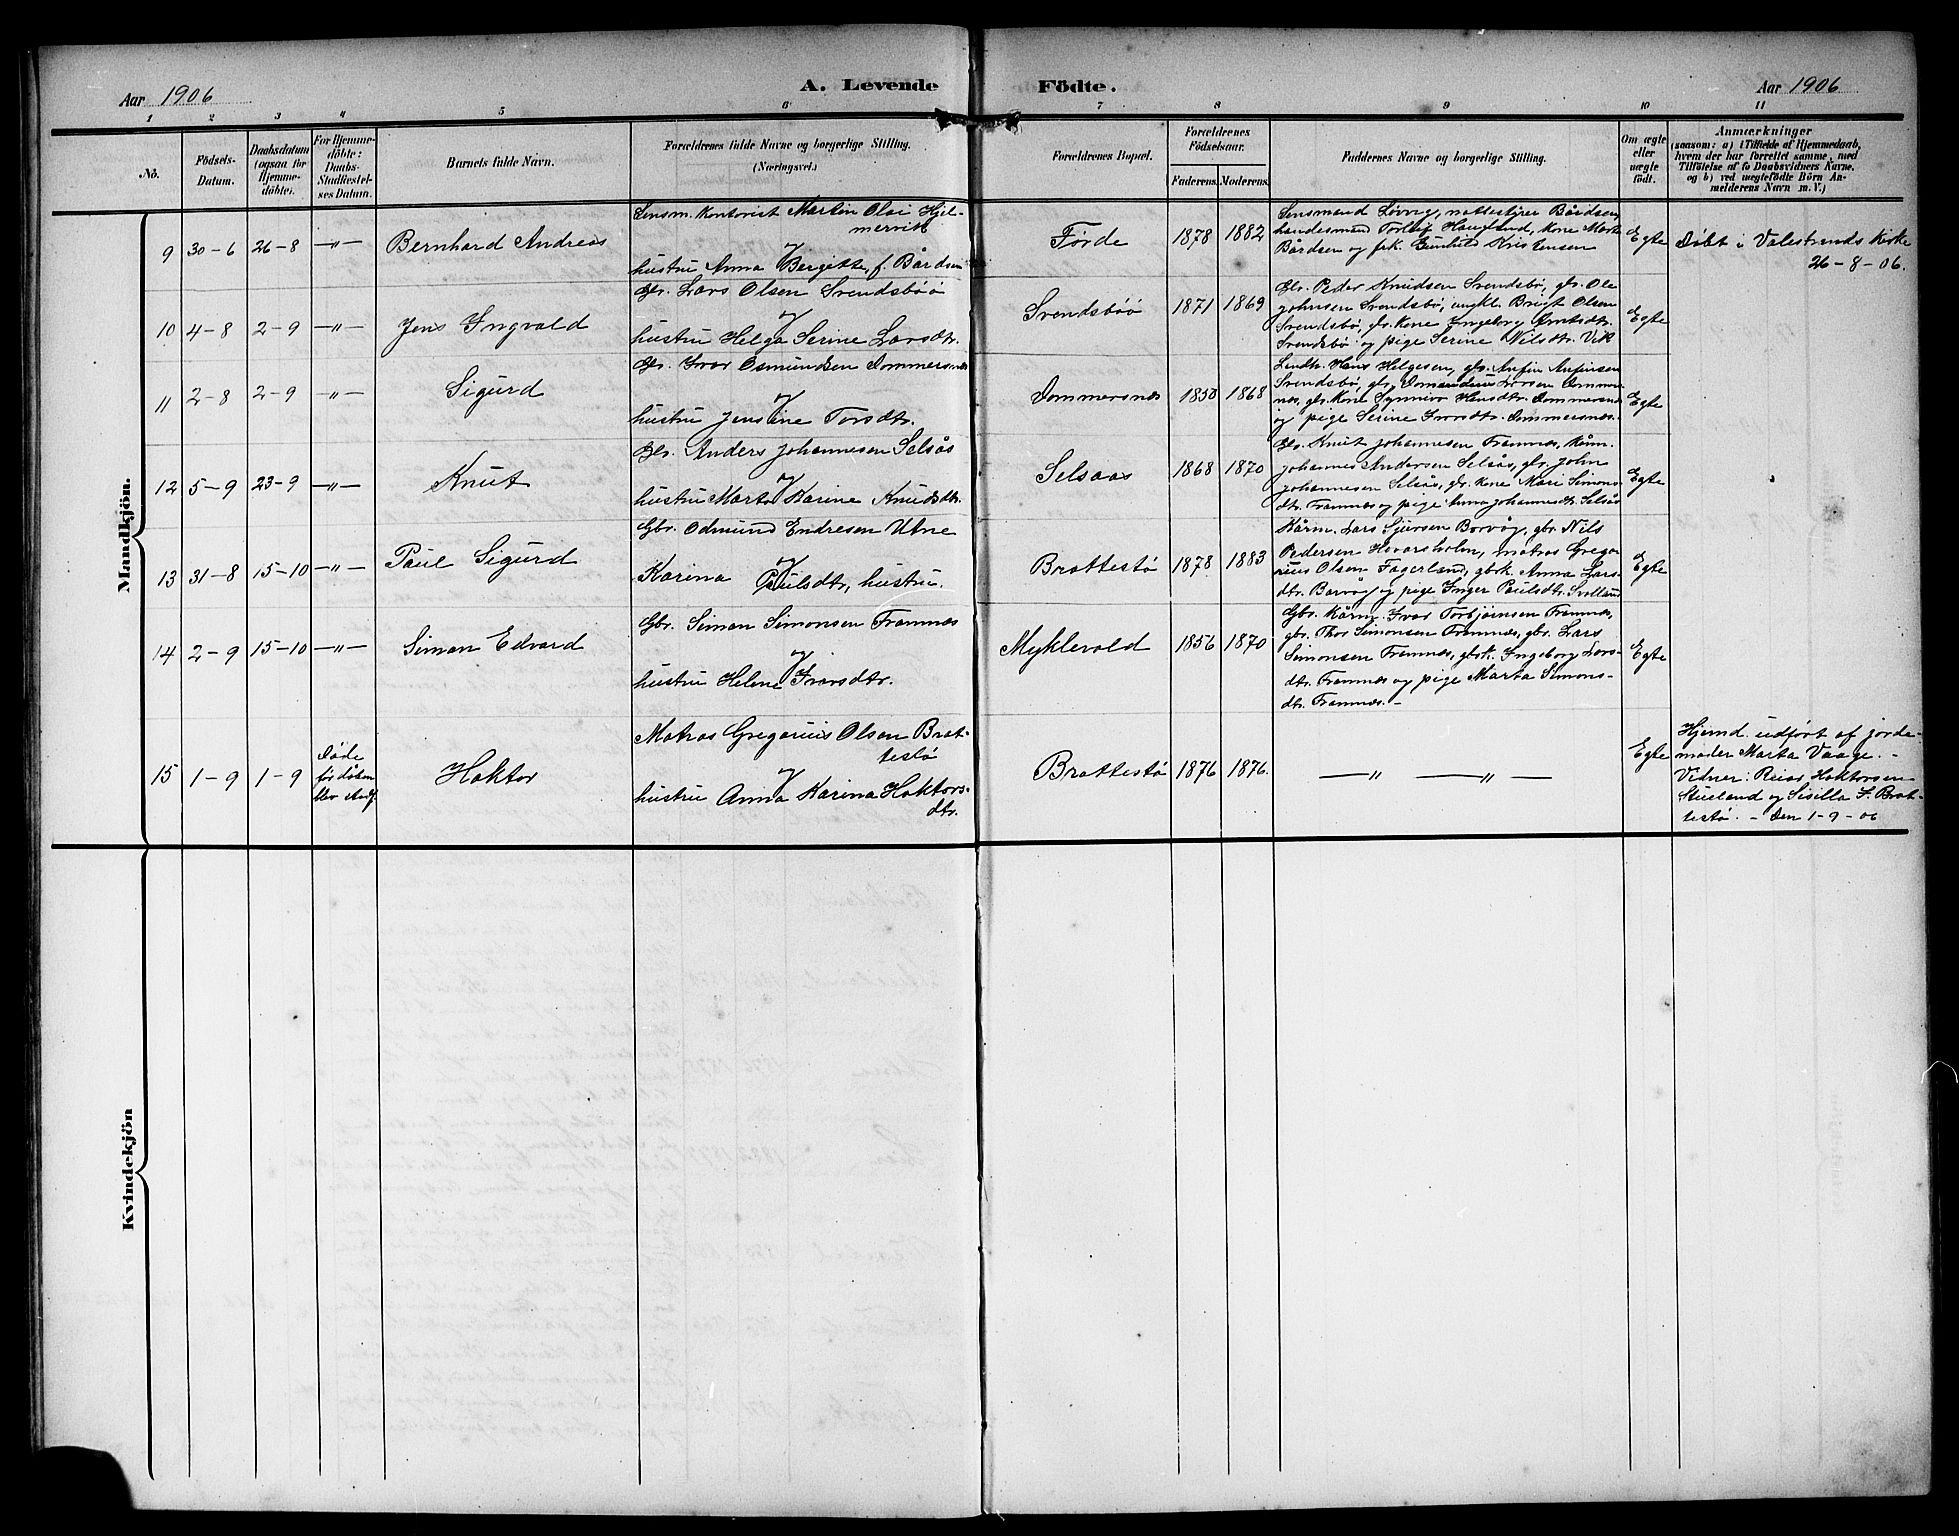 Aar 1906
A. Levende
Födte.
Aar 1906
1 2 3 4 5 6 7 8 9 10 11
No.
Födsels-
Datum.
Daabsdatum
(ogsaa for
Hjemme-
döbte).
For Hjemme-
döbte:
Daabs-
Stadfæstel-
ses Datum.
Barnets fulde Navn.
Forældrenes fulde Navne og borgerlige Stilling.
(Næringsvei.)
Forældrenes Bopæl.
Forældrenes
Födselsaar.
Faderens. Moderens.
Faddernes Navne og borgerlige Stilling.
Om ægte
eller
uægte
födt.
Anmærkninger
(saasom: a) i Tilfælde af Hjemmedaab,
hvem der har forrettet samme, med
Tilföielse af to Daabsvidners Navne,
og b) ved uægtefödte Börn An-
melderens Navn m. V.)
Mandkjön.
9 30-6 26-8 —"— Bernhard Andreas
Lensm. kontorist Martin Olai Hjel-
mervik
og
hustru Anna Bergitte, f. Bårdsen
Førde 1878 1882
Lensmand Løvig, mattestyrer Bårdsen,
handelsmand Torleif Haugland, kone Marta
Bårdsen og frk. Gunhild Kristensen
Egte
Døbt i Valestrands Kirke
26-8-06.
10 4-8 2-9 —"— Jens Ingvald
Gbr. Lars Olsen Svendsbøø
og
hustru Helga Serine Larsdtr.
Svendsbøø 1871 1869
Gbr. Peder Knudsen Svendsbø, gbr. Ole
Johnsen Svendsbø, ungkl. Brigt Olsen
Svendsbø, gbr. kone Ingeborg Arntsdtr.
Svendsbø og pige Serine Nilsdtr. Vik
Egte
11 2-8 2-9 —"— Sigurd
Gbr. Ivar Osmundsen Dommersnes
og
hustru Jensine Torsdtr.
Dommersnes 1858 1868
Hans Helgesen, gbr. Anfin Anfinsen
Svendsbø, gbr. Larsen Dommers-
nes, gbr. kone Synniva Hansdtr. Dommersnes
og pige Serine Ivarsdtr. Dommersnes.
Egte
12 5-9 23-9 —"— Knut
Gbr. Anders Johannesen Selsås
og
hustru Marta Karine Knudsdtr.
Selsaas 1868 1870
Gbr. Knut Johannesen Framnes, kårm.
Johannes Andersen Selsås, gbr. John
Johannesen Selsås, gbr. kone Mari Simons-
dtr. Framnes og pige Anna Johannesdtr. Selsås
Egte
13 31-8 15-10 —"— Paul Sigurd
Gbr. Odmund Endresen Utne
og
Karina Paulsdtr, hustru.
Brattestø 1878 1883
Kårm. Lars Sjursen Borvåg, gbr. Nils
Pedersen Hovarsholm, matros Grego-
rius Olsen Fagerland, gbrk. Anna Lars-
dtr. Borvåg og pige Inger Paulsdtr. Svolland
Egte
14 2-9 15-10 —"— Simon Edvard
Gbr. Simon Simonsen Framnes
og
hustru Helene Ivarsdtr.
Myklevold 1856 1870
Gbr. Kårm. Ivar Torbjørnsen Framnes,
gbr. Thor Simonsen Framnes, gbr. Lars
Simonsen Framnes, gbrk. Ingeborg Lars-
dtr. Framnes og pige Marta Simons-
dtr. Framnes. -
Egte
15 1-9 1-9
Døde
før dåben
blev stadf.
Haktor
Matros Gregorius Olsen Brat-
testø
og
hustru Anna Karina Haktors-
dtr.
Brattestø 1876 1876.
— " — " —
Egte
Hjemd. udført af jorde-
moder Marta Vaage. -
Vidner: Reiar Haktorsen
Stusland og Sisilla F. Brat-
testø. - Den 1-9-06
Kvindekjön